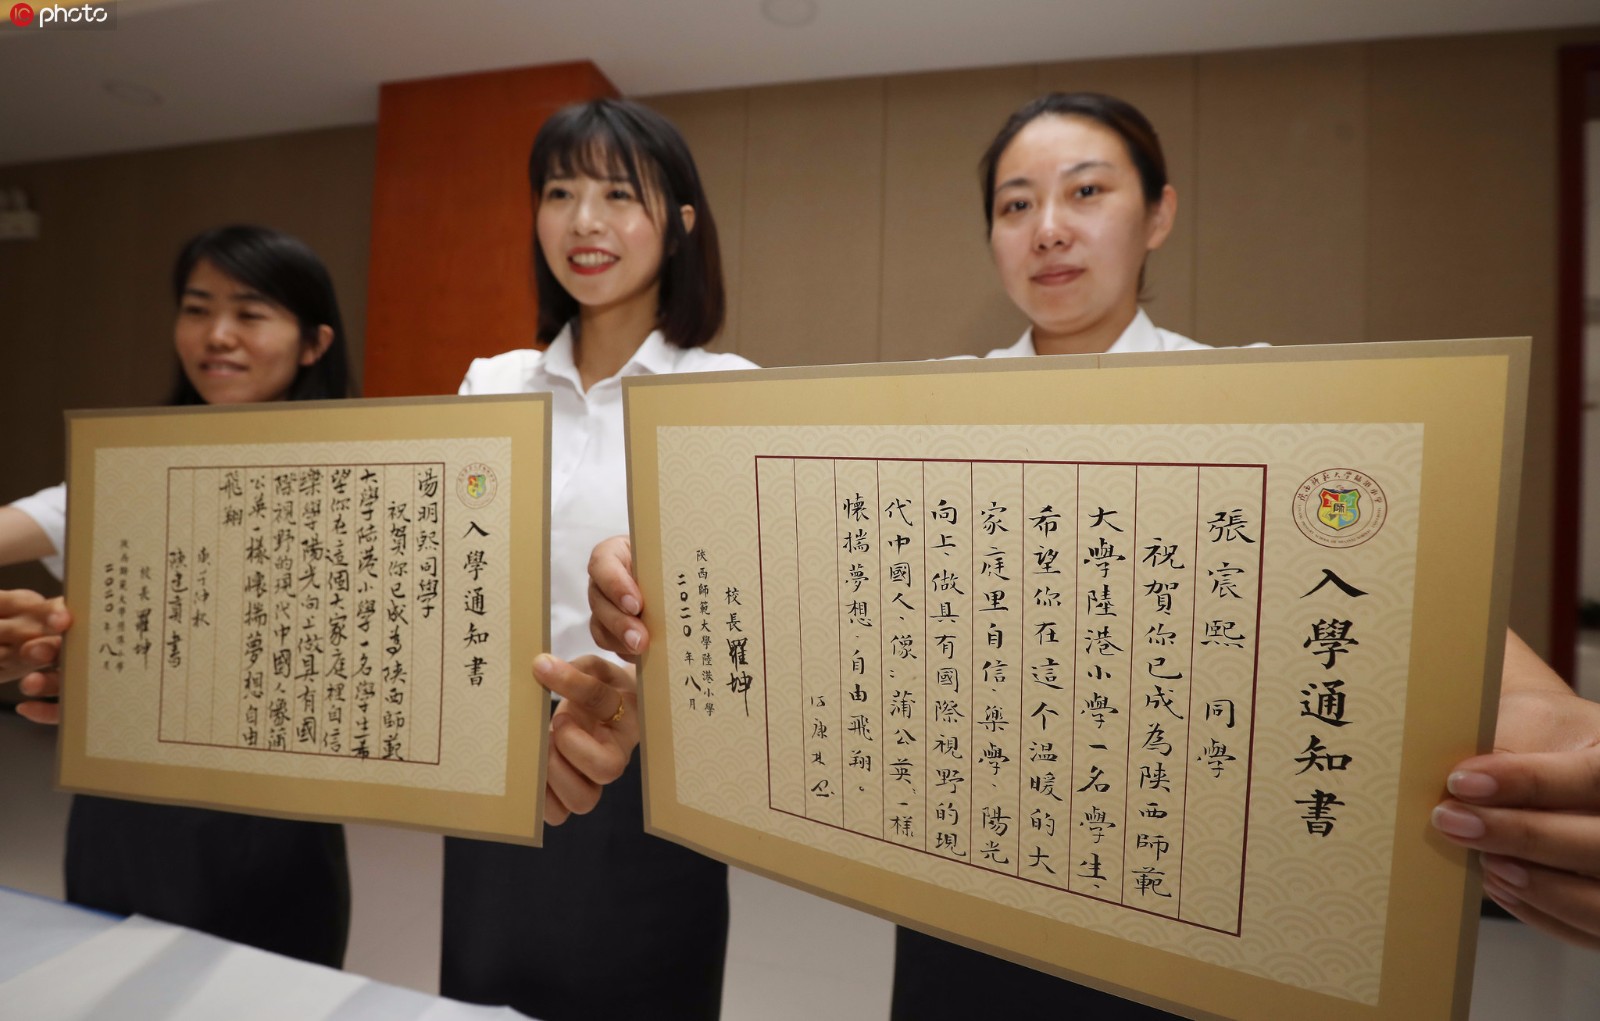 IC photo
湯明熙同學
祝賀你已成為陝西師範
大學陸港小學一名學生希
望你在這個大家庭裡自信
樂學陽光向上做具有國
際視野的現代中國人像蒲
公英一樣懷揣夢想自由
飛翔
陳建真書
入學通知書
校長羅坤
陝西師範大學陸港小學
二〇二〇年八月
陝西師範大學陸港小學
師
入學通知書
張宸熙 同學
祝賀你已成為陝西師範
大學陸港小學一名學生、
希望你在這个温暖的大
家庭里自信、樂學、陽光
向上、做具有國際視野的現
代中國人、像:蒲公英、一樣
懷揣夢想、自由飛翔。
校長羅坤
陝西師範大學陸港小學
二〇二〇年八月